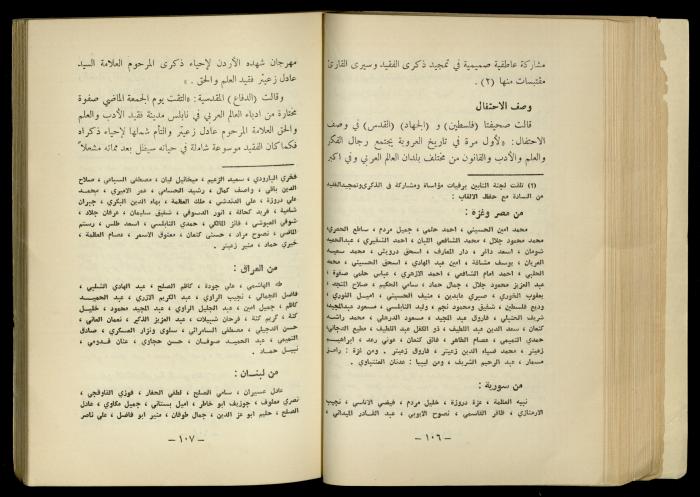 مشاركة عاطفية صميمية في تمجيد ذكرى الفقيد وسيرى القارئ
مقتبسات منها (٢) .
وصف الاحتفال
قالت صحيفتا (فلسطين) و (الجهاد) (القدس) في وصف
الاحتفال: «لأول مرة في تاريخ العروبة يجتمع رجال الفكر
والعلم والأدب والقانون من مختلف بلدان العالم العربي وفي اكبر
(٢) تلقت لجنة التأبين برقيات مؤاساة ومشاركة في الذكرى وتمجيد الفقيد
من السادة مع حفظ الالقاب :
من مصر وغزة :
محمد امين الحسيني ، احمد حلمي ، جميل مردم ، ساطع الحصري
محمد محمود جلال ، محمد الشافعي اللبان ، احمد الشقيري ، عبدالحميد
شومان ، اسعد داغر ، دار المعارف ، اسحق درويش ، محمد سعيد
العريان ، يوسف مشاقة ، امين عبد الهادي ، اسحق الحسيني ، محمد
الحلبي ، احمد امام الشافعي ، احمد الازهري ، عباس حلمي صفوة ،
عبد العزيز محمود جلال ، جمال حماد ، سامي الحكيم ، صلاح المنجد ،
يعقوب الخوري ، صبري عابدين ، منيف الحسيني ، اميل الغوري ،
وديع فلسطين ، شفيق ومحمود نجم ، وليد النابلسي ، مسعود عبدالمجيد
شريف الحتيلي ، فاروق عبد المجيد ، مسعود الدرهلي ، محمد راشد
كنعان ، سعد الدين عبد اللطيف ، ذو الكفل عبد اللطيف ، مطيع الدجاني
حمدي التميمي ، عصام الظاهر ، فائق كنعان ، عوني رعد ، ابراهيم
زعيتر ، محمد ضياء الدين زعيتر ، فاروق زعيتر . ومن غزة : رامز
مسمار ، عبد الرحيم الشريف ، ومن ليبيا : عدنان العنبتاوي .
من سورية :
نبيه العظمة ، عزة دروزة ، خليل مردم ، فيضي الاتاسي ، نجيب
الارمنازي ، ظافر القاسمي ، نصوح الايوبي ، عبد القادر الميداني ،
— ١٠٦ —
مهرجان شهده الأردن لإحياء ذكرى المرحوم العلامة السيد
عادل زعيتر فقيد العلم والحق . »
وقالت (الدفاع) المقدسية: «التقت يوم الجمعة الماضي صفوة
مختارة من ادباء العالم العربي في نابلس مدينة فقيد الأدب والعلم
والحق العلامة المرحوم عادل زعيتر والتأم شملها لإحياء ذكراه
فكما كان الفقيد موسوعة شاملة في حياته سيظل بعد مماته مشعلاً
فخري البارودي ، سعيد الزعيم ، ميخائيل ليان ، مصطفى السباعي ، صلاح
الدين باقي ، واصف كمال ، رشيد الحسامي ، عمر الاميري ، محمد
علي دروزة ، علي الدندشي ، ملك العظمة ، بهاء الدين البكري ، جبران
شامية ، فريد كحالة ، انور الدسوقي ، شفيق سليمان ، عرفان جلاد ،
شوقي العبوشي ، فائز المالكي ، حمدي النابلسي ، اسعد طلس ، رستم
الماضي ، نصوح مراد ، حسني كنعان ، معتوق الاسمر ، عصام العظمة ،
خيري حماد ، منير زعيتر .
من العراق :
طه الهاشمي ، علي جودة ، كاظم الصلح ، عبد الهادي الشلبي ،
فاضل الجمالي ، نجيب الراوي ، عبد الكريم الازري ، عبد الحميد
كاظم ، جميل امين ، عبد الجليل الراوي ، عبد المجيد محمود ، خليل
كنة ، كريم كنة ، فرحان شبيلات ، عبد العزيز الذكير ، نعمان العاني ،
حسن الدجيلي ، مصطفى السامرائي ، سلوى ونزار العسكري ، صادق
التميمي ، عبد الحميد صوفان ، حسن حجاوي ، عنان قدومي ،
نبيل حماد .
من لبنان :
عادل عسيران ، سامي الصلح ، لطفي الحفار ، فوزي القاوقجي ،
نصري معلوف ، جوزيف ابو خاطر ، اميل بستاني ، جميل مكاوي ، عادل
الصلح ، حليم ابو عز الدين ، جمال طوقان ، منير ابو فاضل ، علي ناصر
— ١٠٧ —